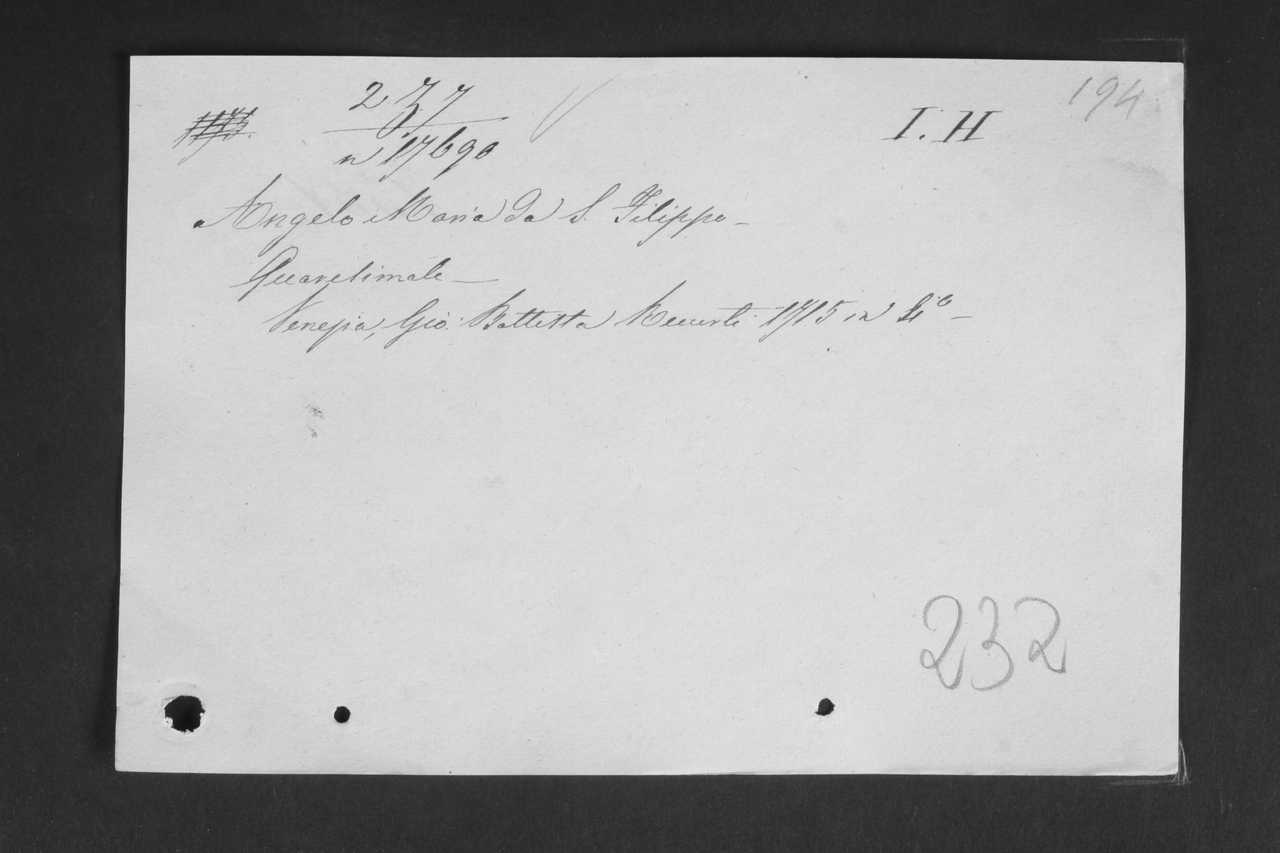 237
n 17690
I. H
194
Angelo Maria da S. Filippo —
Quaresimale —
Venezia, Gio: Battista Recurti 1715 in 4º —
232